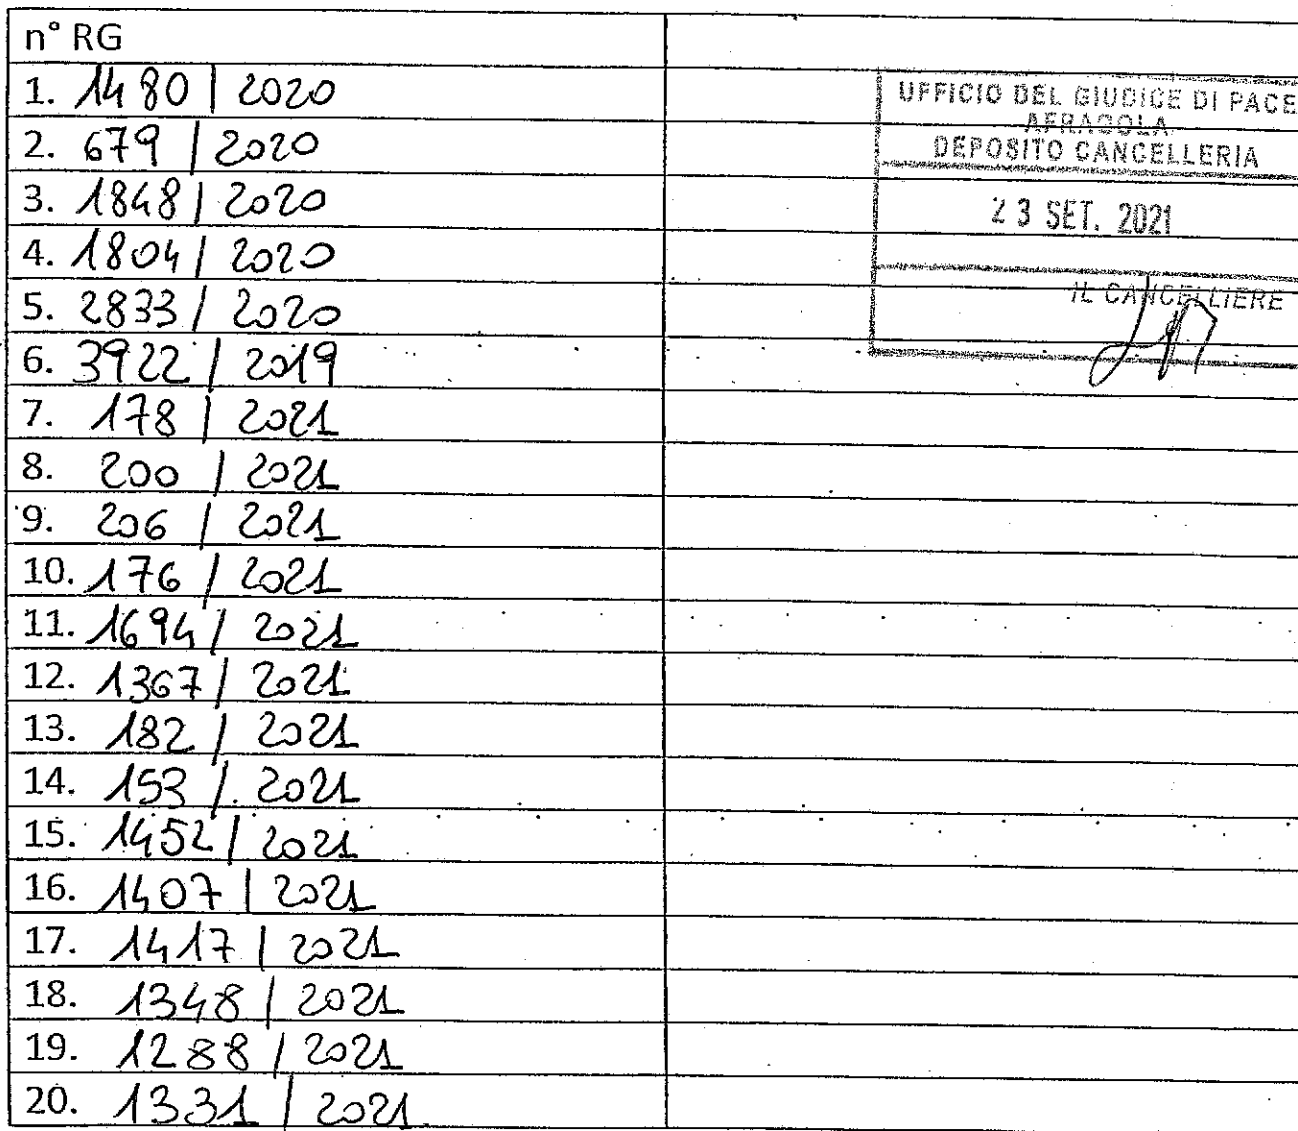 n° RG
1. 1480 | 2020
2. 679 / 2020
3. 1848 / 2020
4. 1804 / 2020
5. 2833 / 2020
6. 3922 / 2019
7. 178 / 2021
8. 200 / 2021
9. 206 / 2021
10. 176 / 2021
11. 1694 / 2021
12. 1367 / 2021
13. 182 / 2021
14. 153 / 2021
15. 1452 / 2021
16. 1407 | 2021
17. 1417 | 2021
18. 1348 / 2021
19. 1288 / 2021
20. 1331 / 2021
UFFICIO DEL GIUDICE DI PACE
AFRAGOLA
DEPOSITO CANCELLERIA
23 SET. 2021
IL CANCELLIERE